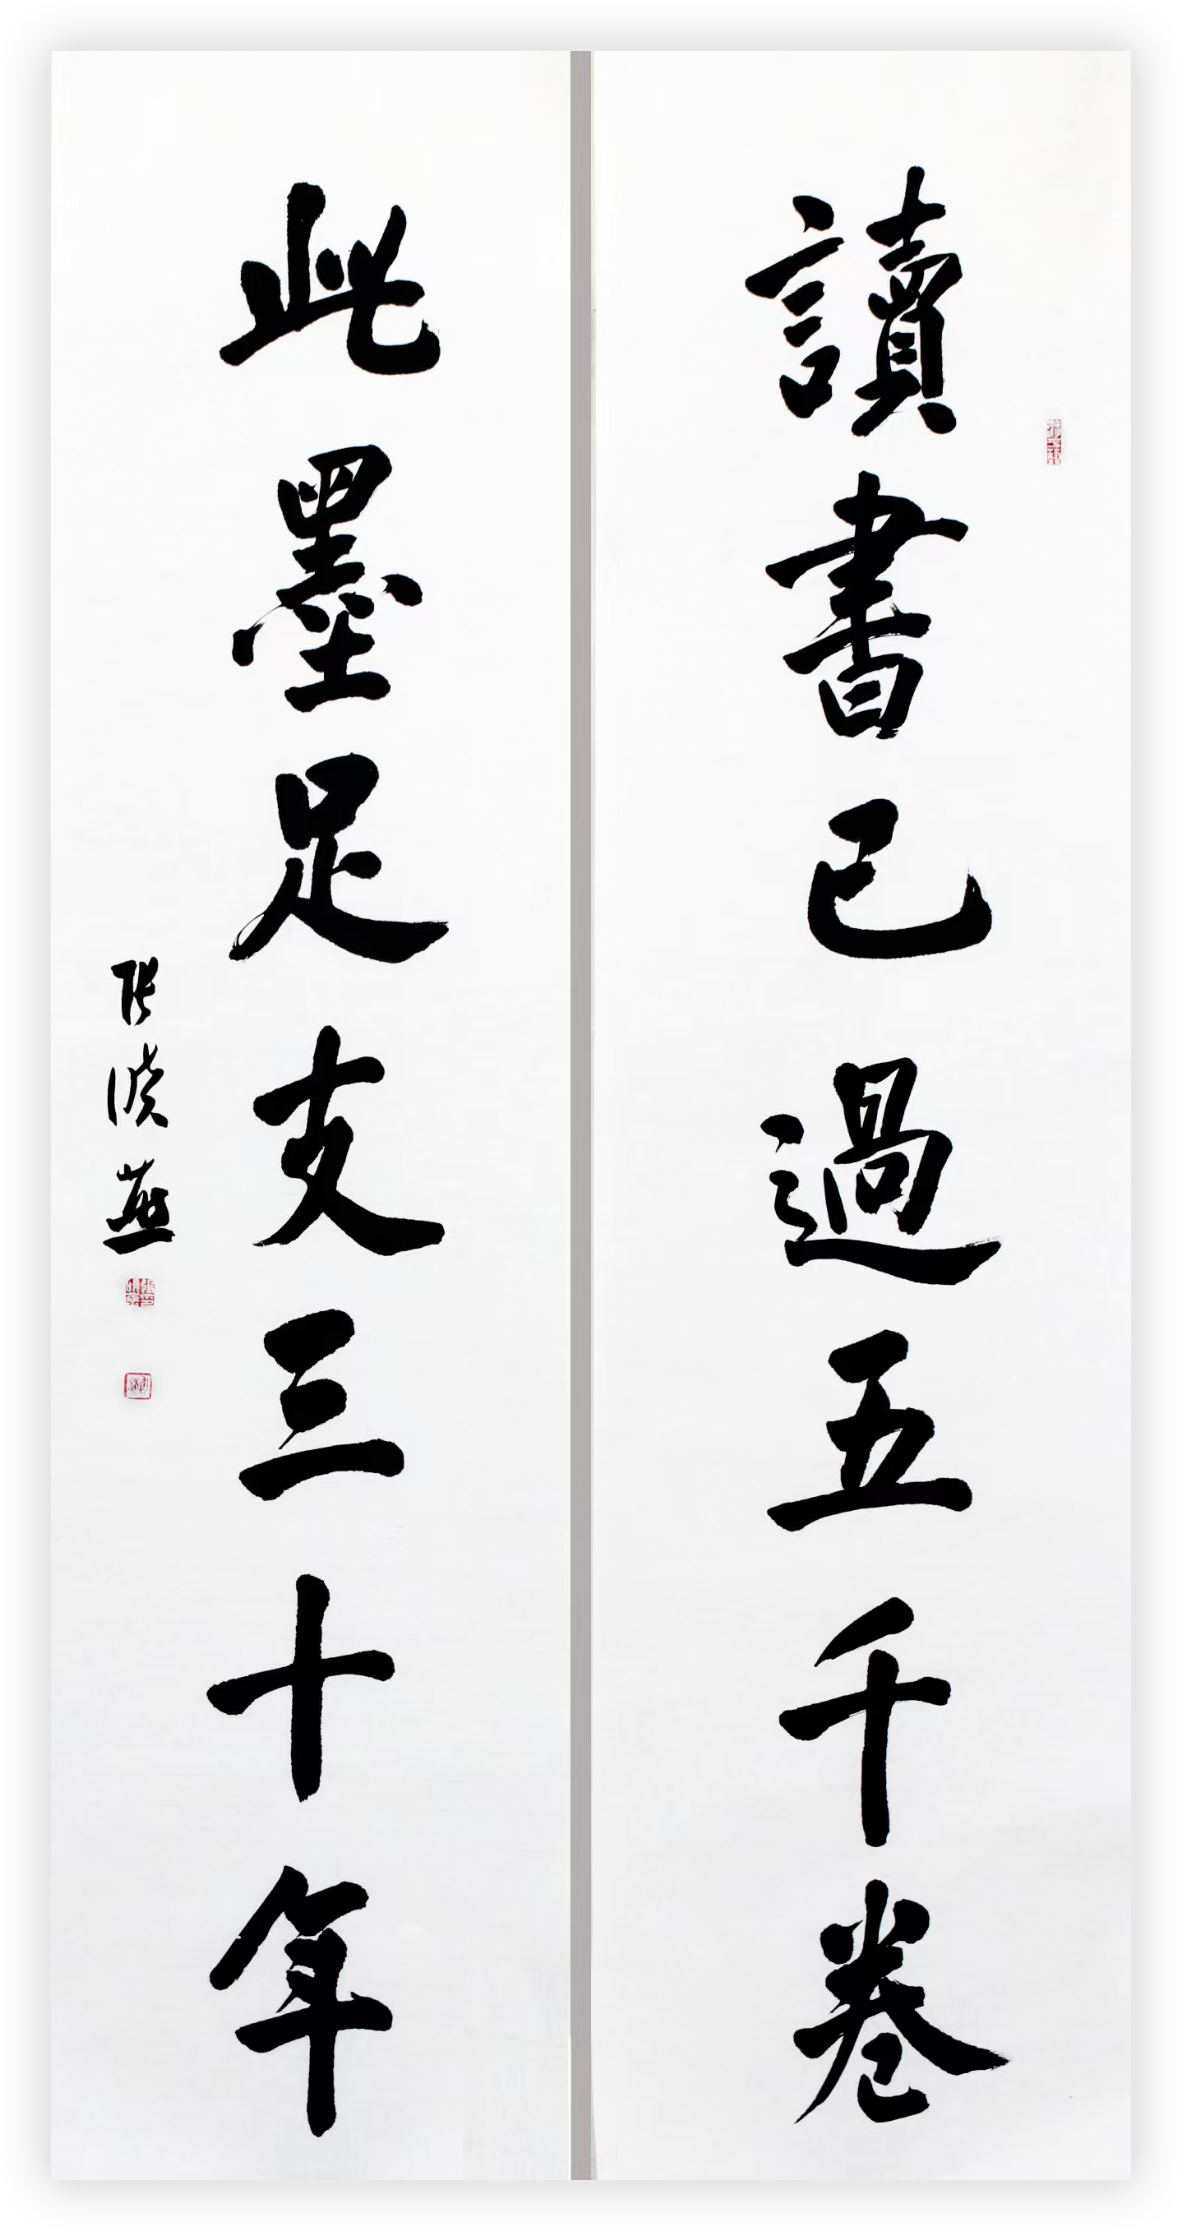 讀書已過五千卷
此墨足支三十年
张晓燕